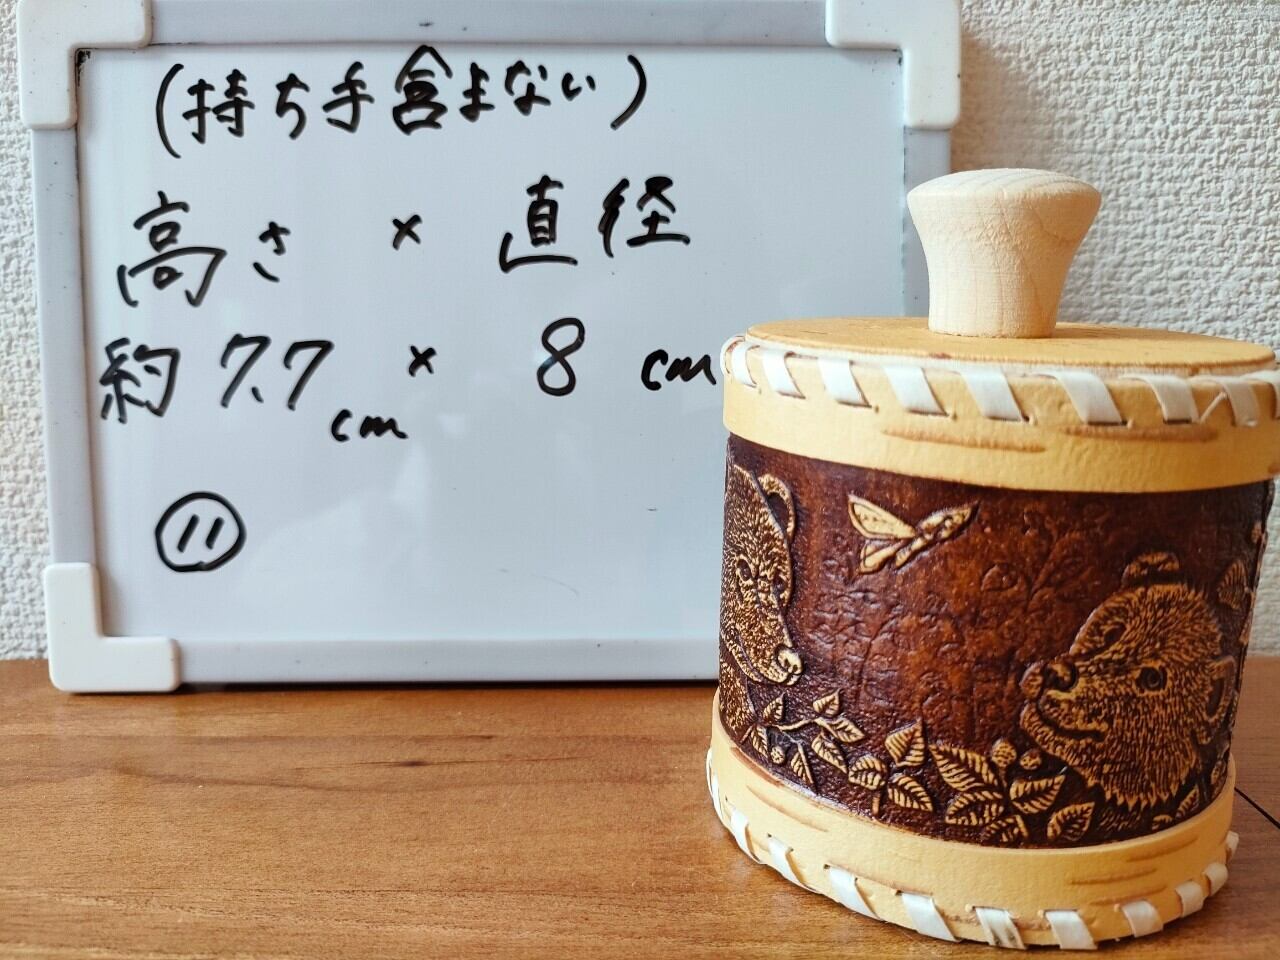 (持ち手含まない)
高さ × 直径
約 7.7cm × 8 cm
⑪